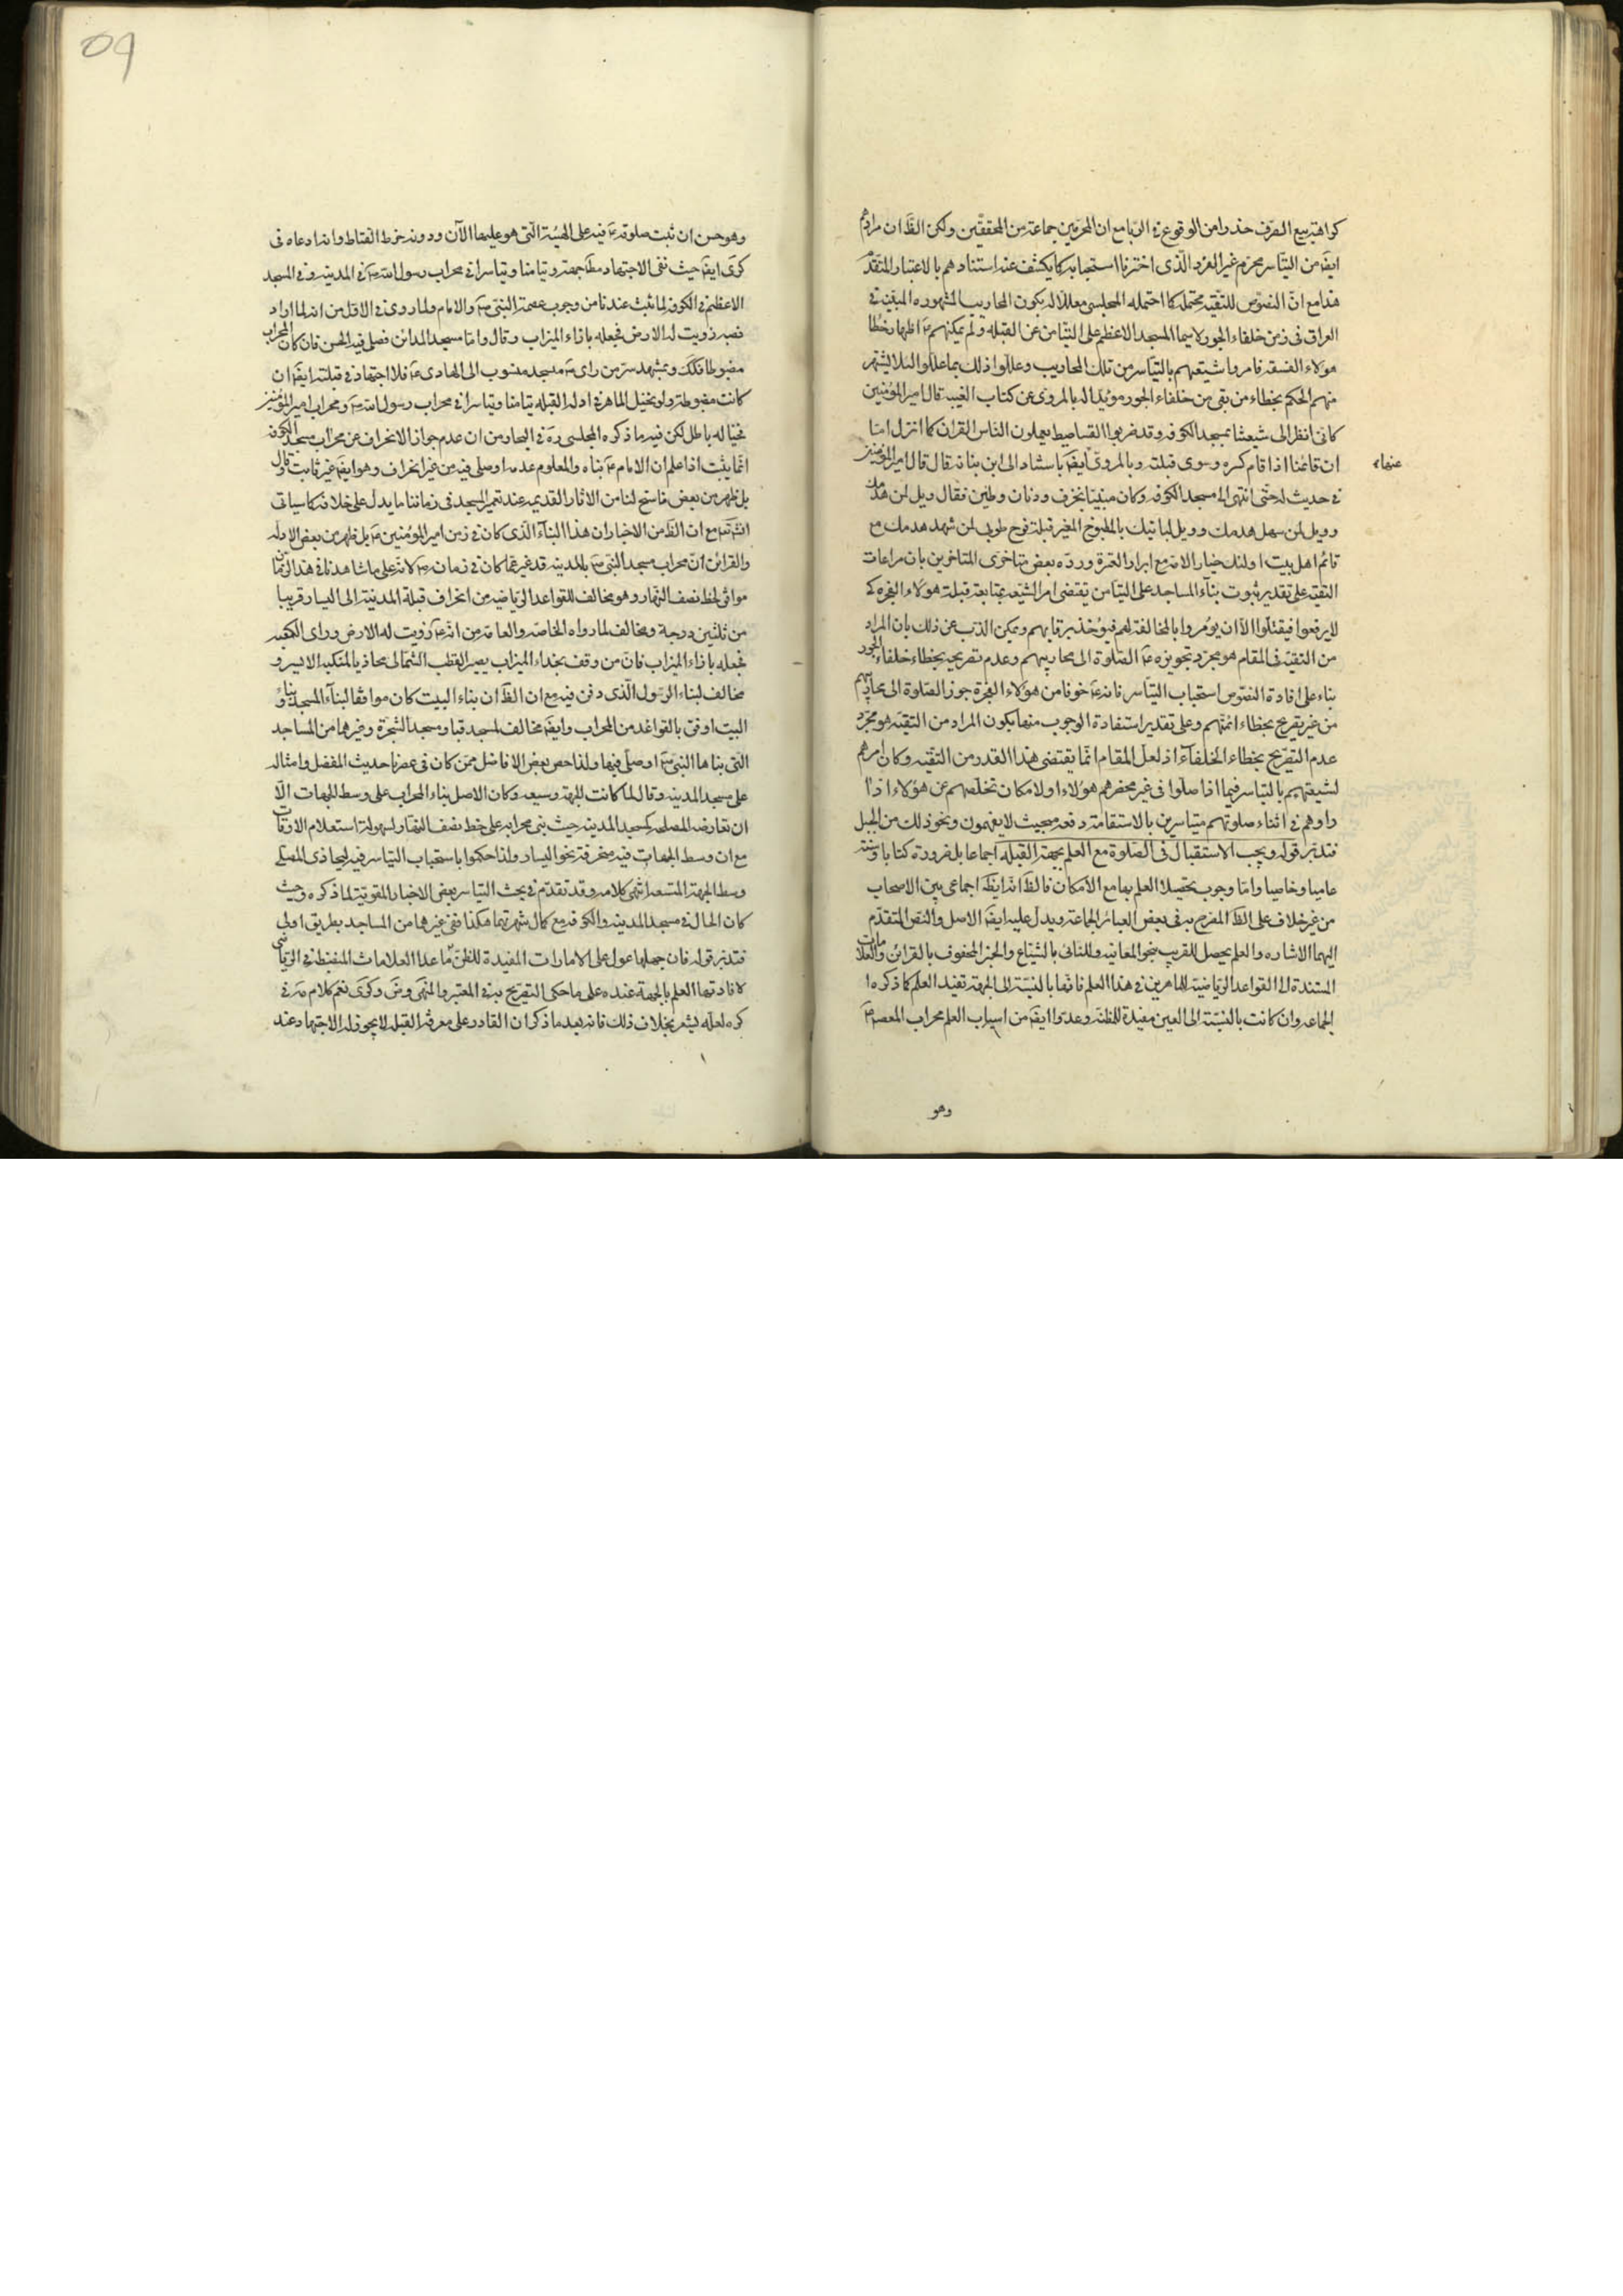 كراهة بيع الصرف حذرا من الوقوع في الربا مع ان المحرمين جماعة من المحققين ولكن الظ ان مرادهم
ايضا من التياسر محرم غير الفرد الذي اخترنا استحبابه كما يكشف عنه استنادهم بالاعتبار المتقدم
هذا مع ان النصوص للتقيه محتمله كما احتمله المجلسي معللا له بكون المحاريب المشهوره المبنية في
العراق في زمن خلفاء الجور لا سيما المسجد الاعظم على التيامن عن القبله ولم يمكنهم ع اظهار خطا
هؤلاء الفسقه فامروا شيعتهم بالتياسر من تلك المحاريب وعللوا ذلك بما عللوا لئلا يشتهر
منهم الحكم بخطاء من بقى من خلفاء الجور مؤيدا له بالمروى عن كتاب الغيبه قال امير المؤمنين
كاني انظر الى شيعتنا بمسجد الكوفه وقد ضربوا الفساطيط يعلمون الناس القران كما انزل اما
ان قائمنا اذا قام كسره وسوى قبلته وبالمروى ايضا باسناد الى ابن نباته قال قال امير المؤمنين
عنهاء
في حديث له حتى انتهى الى مسجد الكوفه وكان مبنيا بخزف ودنان وطين فقال ويل لمن هدمك
وويل لمن سهل هدمك وويل لبانيك بالمطبوخ المغير قبلة نوح طوبى لمن شهد هدمك مع
قائم اهل بيتى اولئك خيار الامه مع ابرار العترة ورده بعض متاخرى المتاخرين بان مراعات
التقيه على تقدير ثبوت بناء المساجد على التيامن يقتضى امر الشيعه بمتابعة قبلة هؤلاء الفجره كي
لا يرفعوا فيقتلوا الا ان يؤمروا بالمخالفة لهم فيؤخذ برقابهم ويمكن الذب عن ذلك بان المراد
من التقيه في المقام هو مجرد تجويزه ع الصلوة الى محاريبهم وعدم تصريحه بخطاء خلفاء الجور
بناء على افادة النصوص استحباب التياسر فانه ع خوفا من هؤلاء الفجرة جوز الصلوة الى محاريبهم
من غير تصريح بخطاء ائمتهم وعلى تقدير استفادة الوجوب منها يكون المراد من التقيه هو مجرد
عدم التصريح بخطاء الخلفاء اذ لعل المقام انما يقتضى هذا القدر من التقيه وكان امرهم
لشيعتهم بالتياسر فيما اذا صلوا في غير محضرهم هؤلاء او لامكان تخلصهم عن هؤلاء اذا
راوهم في اثناء صلوتهم متياسرين بالاستقامة دفعه بحيث لا يفهمون ونحو ذلك من الحيل
فتدبر قوله ويجب الاستقبال في الصلوة مع العلم بجهة القبله اجماعا بل ضرورة كتابا وسنة
عاميا وخاصيا واما وجوب تحصيل العلم بها مع الامكان فالظ انه ايضا اجماعي بين الاصحاب
من غير خلاف على الظ المصرح به في بعض العبائر لجماعة ويدل عليه ايضا الاصل والنص المتقدم
اليهما الاشاره والعلم يحصل للقريب بنحو المعاينه وللنائى بالشياع والخبر المحفوف بالقرائن والعلامات
المستندة الى القواعد الرياضية للماهرين في هذا العلم فانها بالنسبة الى الجهة تفيد العلم كما ذكره
الجماعه وان كانت بالنسبة الى العين مفيدة للمظنه وعدوا ايضا من اسباب العلم محراب المعصوم ع
وهو
وهو حسن ان ثبت صلوته ع فيه على الهيئة التي هو عليها الان ودونه خرط القتاط وانه ادعاه في
كرى ايضا حيث نفى الاجتهاد مط جهة وتيامنا وتياسرا في محراب رسول الله ص في المدينه وفي المسجد
الاعظم في الكوفه لما ثبت عندنا من وجوب عصمة النبي ص والامام ولما روى في الاول من انه لما اراد
نصبه زويت له الارض فجعله بازاء الميزاب وقال واما مسجد المدائن فصلى فيه الحسن فان كان المحراب
مضبوطا فكك وبمشهد سر من راى ع مسجد منسوب الى الهادى ع فلا اجتهاد في قبلته ايضا ان
كانت مضبوطة ولو تخيل الماهر في ادلة القبله تيامنا وتياسرا في محراب رسول الله ص ومحراب امير المؤمنين
فخياله باطل لكن فيه ما ذكره المجلسى ره في البحار من ان عدم جواز الانحراف عن محراب مسجد الكوفه
انما يثبت اذا علم ان الامام ع بناه والمعلوم عدمه او صلى فيه من غير انحراف وهو ايضا غير ثابت قال
بل ظهر من بعض ما سنح لنا من الاثار القديمه عند تعمير المسجد في زماننا ما يدل على خلافه كما سياتى
انش تع مع ان الظ من الاخبار ان هذا البناء الذى كان في زمن امير المؤمنين ع بل ظهر من بعض الادله
والقرائن ان محراب مسجد النبي ص بالمدينه قد غير عما كان في زمانه ص لانه على ما شاهدنا في هذا الزمان
موافق لخط نصف النهار وهو مخالف للقواعد الرياضيه من انحراف قبلة المدينة الى اليسار قريبا
من ثلثين درجة ومخالف لما رواه الخاصه والعامة من انه ع زويت له الارض وراى الكعبه
فجعله بازاء الميزاب فان من وقف بحذاء الميزاب يصير القطب الشمالى محاذيا لمنكبه الايسر و
مخالف لبناء الرسول الذى دفن فيه مع ان الظ ان بناء البيت كان موافقا لبناء المسجد وبناء
البيت اوفق بالقواعد من المحراب وايضا مخالف لمسجد قبا ومسجد الشجرة وغيرها من المساجد
التى بناها النبي ص او صلى فيها ولذا خص بعض الافاضل ممن كان في عصرنا حديث المفضل وامثاله
على مسجد المدينه وقال لما كانت الجهة وسيعه وكان الاصل بناء المحراب على وسط الجهات الا
ان تعارضه المصلحه كمسجد المدينه حيث بنى محرابه على خط نصف النهار لسهولة استعلام الاوقات
مع ان وسط الجهات فيه منحرفة نحو اليسار ولذا حكموا باستحباب التياسر فيه ليحاذى المصلى
وسط الجهة المتسعه انتهى كلامه وقد تقدم في بحث التياسر بعض الاخبار المقوية لما ذكره وحيث
كان الحال في مسجد المدينه والكوفه مع كمال شهرتهما هكذا ففي غيرهما من المساجد بطريق اولى
فتدبر قوله فان جهلها عول على الامارات المفيدة للظن ما عدا العلامات المنضبطه في الرياضى
لافادتها العلم بالجهة عنده على ما حكى التصريح به في المعتبر والمنتهى وش وكرى نعم كلام مه في
كره لعله يشعر بخلاف ذلك فانه بعد ما ذكر ان القادر على معرفة القبله لا يجوز له الاجتهاد عند